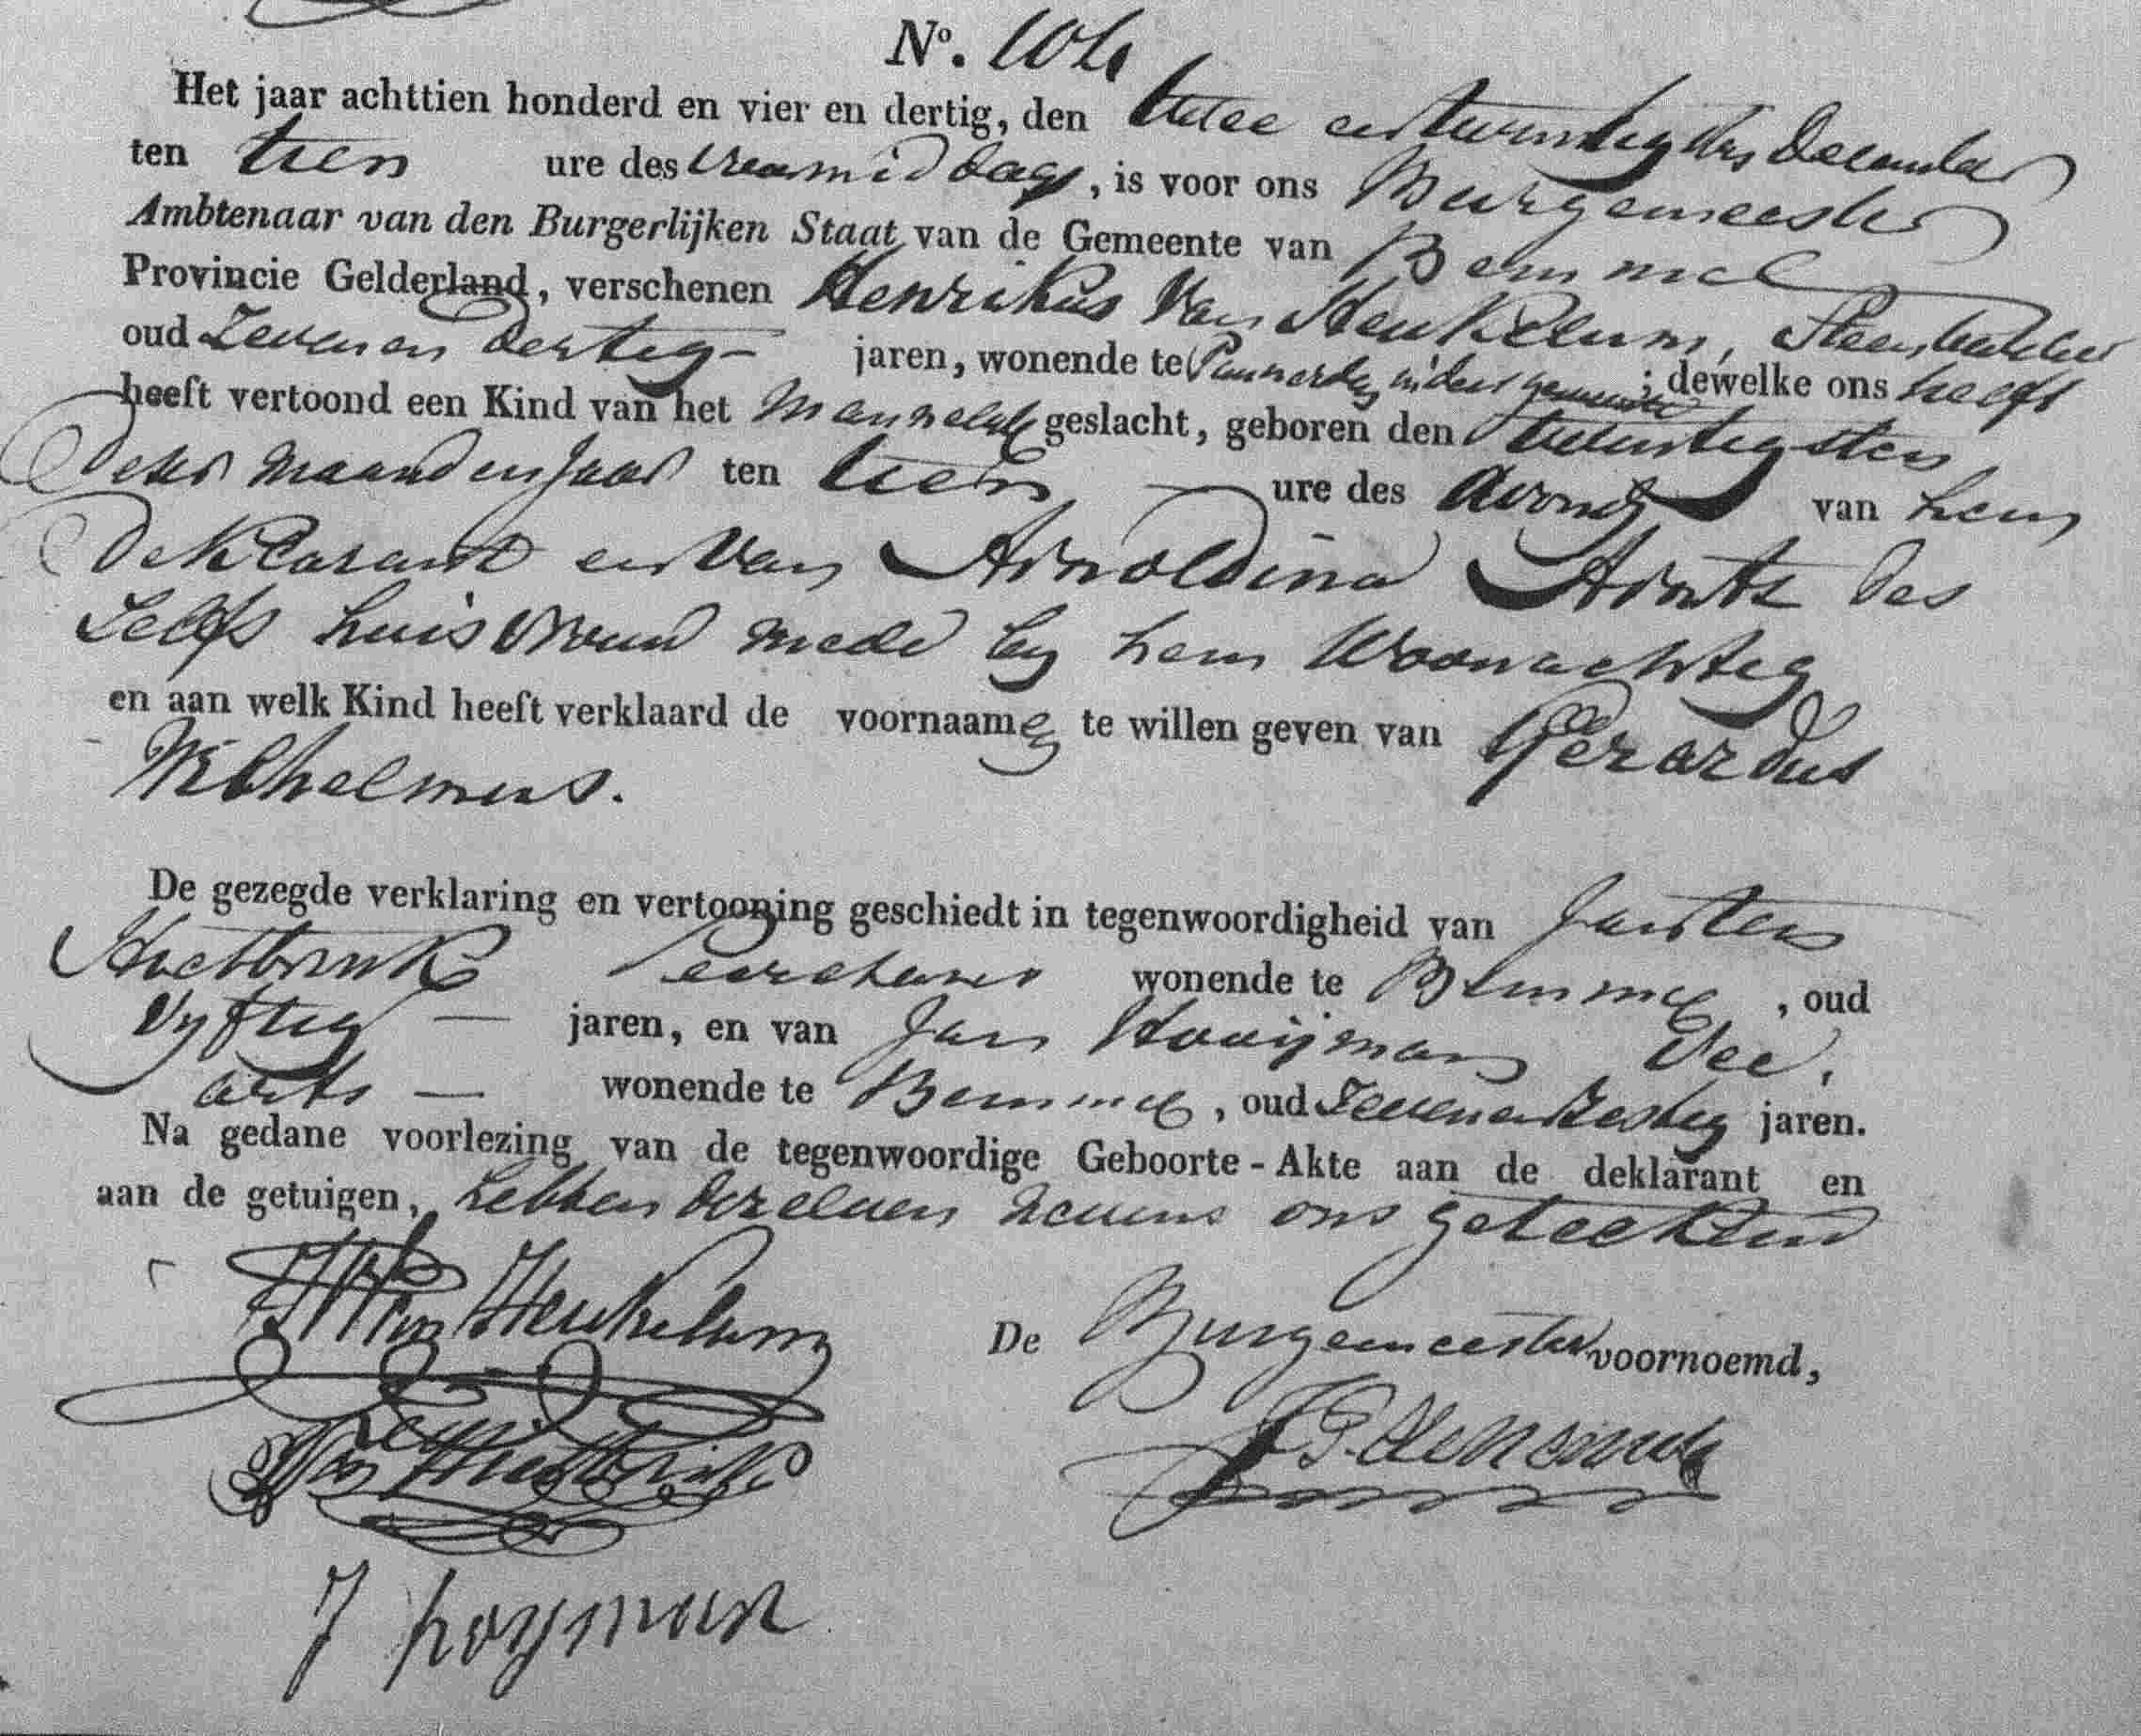 No. 104
Het jaar achttien honderd en vier en dertig, den twee en twintigsten December
ten tien ure des voormiddags, is voor ons Burgemeester
Ambtenaar van den Burgerlijken Staat van de Gemeente van Bemmel
Provincie Gelderland, verschenen Henrikus Van Heukelum, Steenbakker
oud Zeven en dertig jaren, wonende te Pannerden in deze gemeente; dewelke ons heeft
heeft vertoond een Kind van het Mannelyk geslacht, geboren den twintigsten
dezer maand en Jaar ten tien ure des Avonds van hem
Deklarant en van Arnoldina Arntz des
zelfs huisvrouw mede by hem Woonachtig
en aan welk Kind heeft verklaard de voornaamen te willen geven van Gerardus
Wilhelmus.
De gezegde verklaring en vertooning geschiedt in tegenwoordigheid van
wonende te Bemmel, oud
vyftig — jaren, en van Jan Hooijman Vee,
arts — wonende te Bemmel, oud Zevenenzestig jaren.
Na gedane voorlezing van de tegenwoordige Geboorte-Akte aan de deklarant en
aan de getuigen, hebben dezelven nevens ons geteekend
Van Heukelum
De Burgemeester voornoemd,
J hoyman